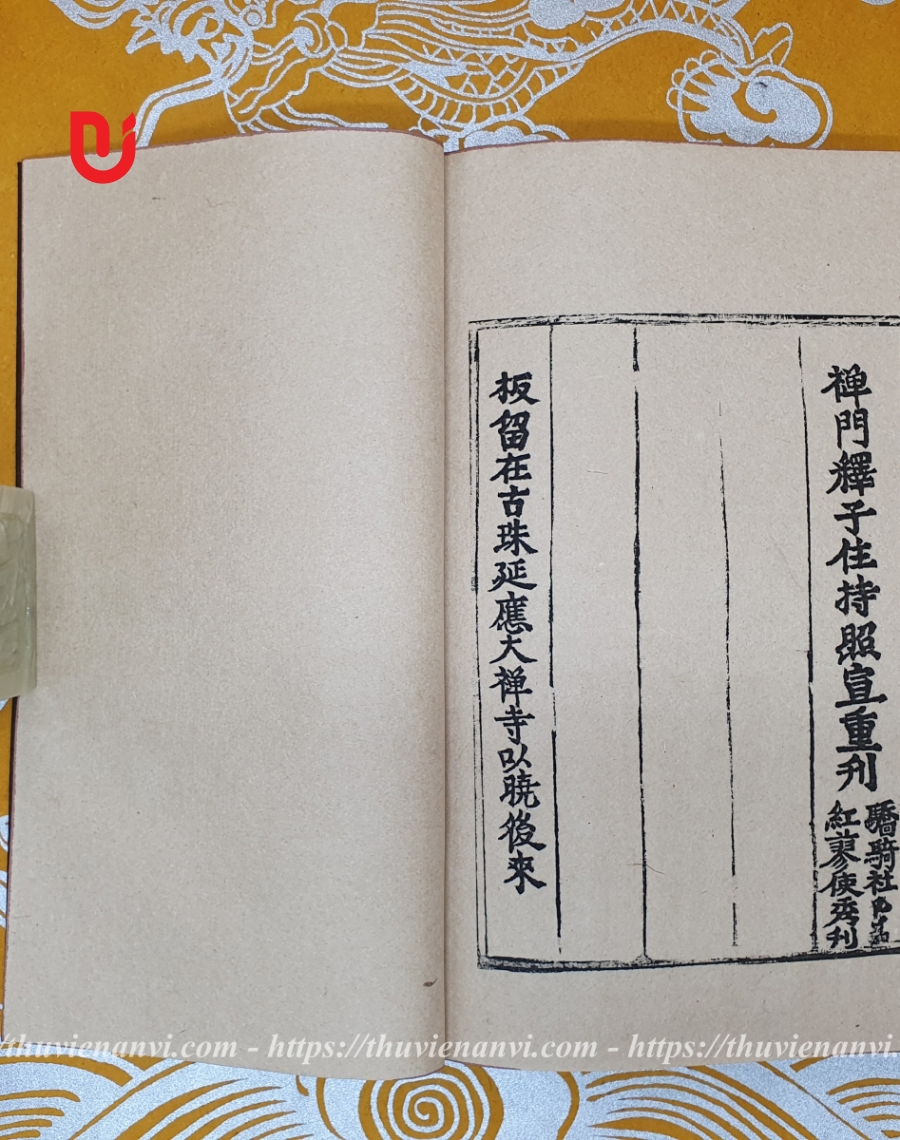 禅門釋子住持照宣重刋
驕騎社
紅蓼使秀刋
板畱在古珠延應大禅寺以曉後來
thuvienanvi.com - https://thuvienanvi.com - https://thuvienanvi.